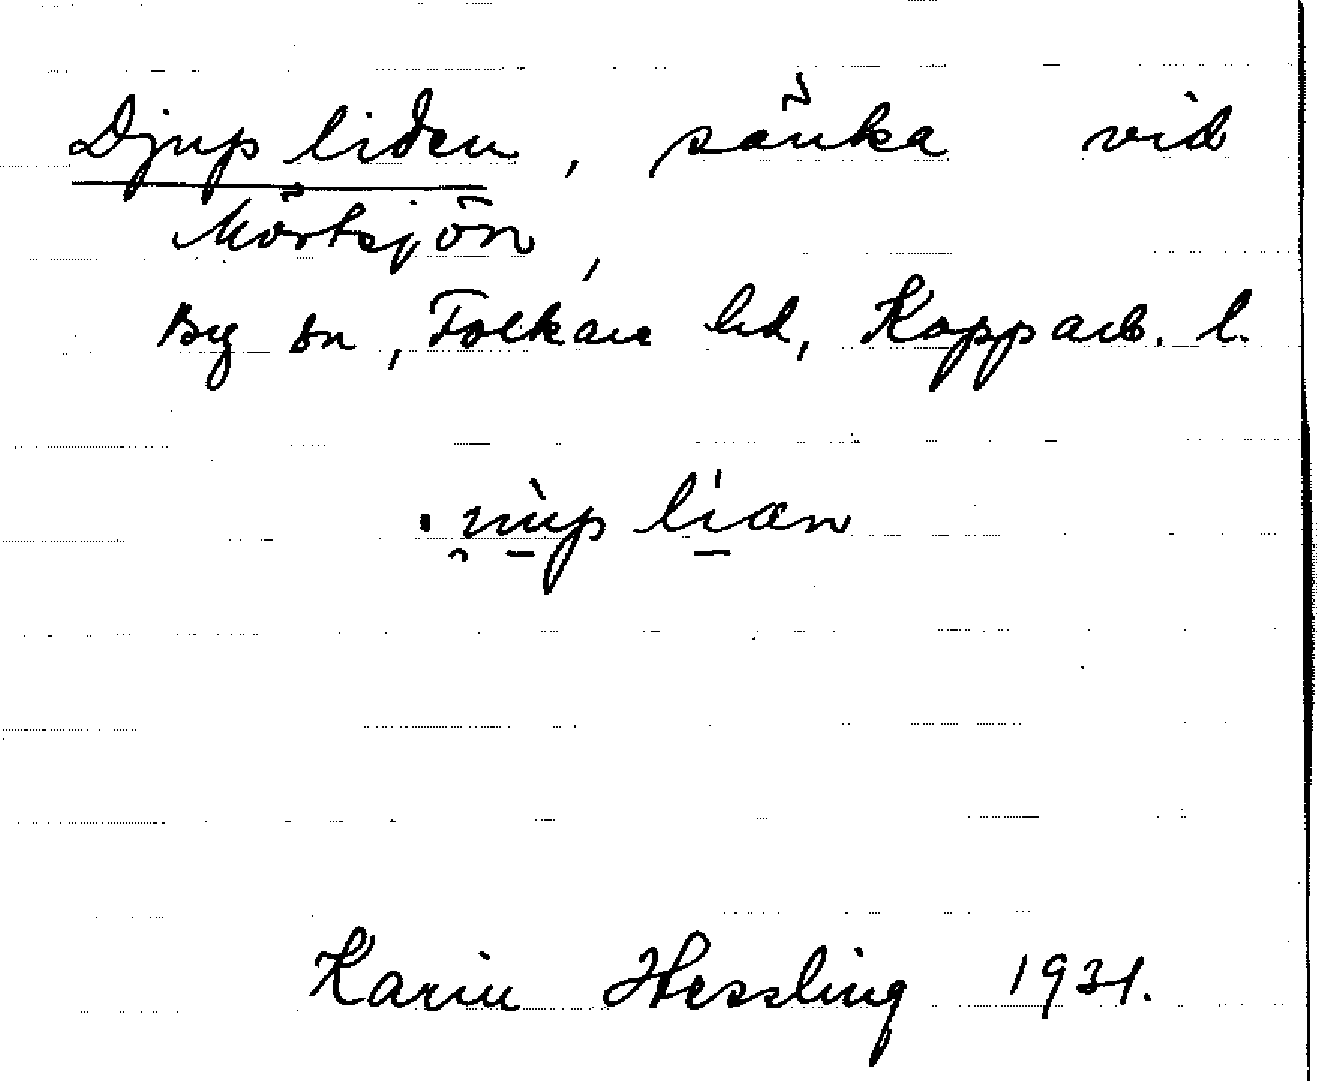 Djupliden, sänka vid
Mörtsjön,
By sn, Folkare hd, Kopparb. l.
Karin Hessling 1931.